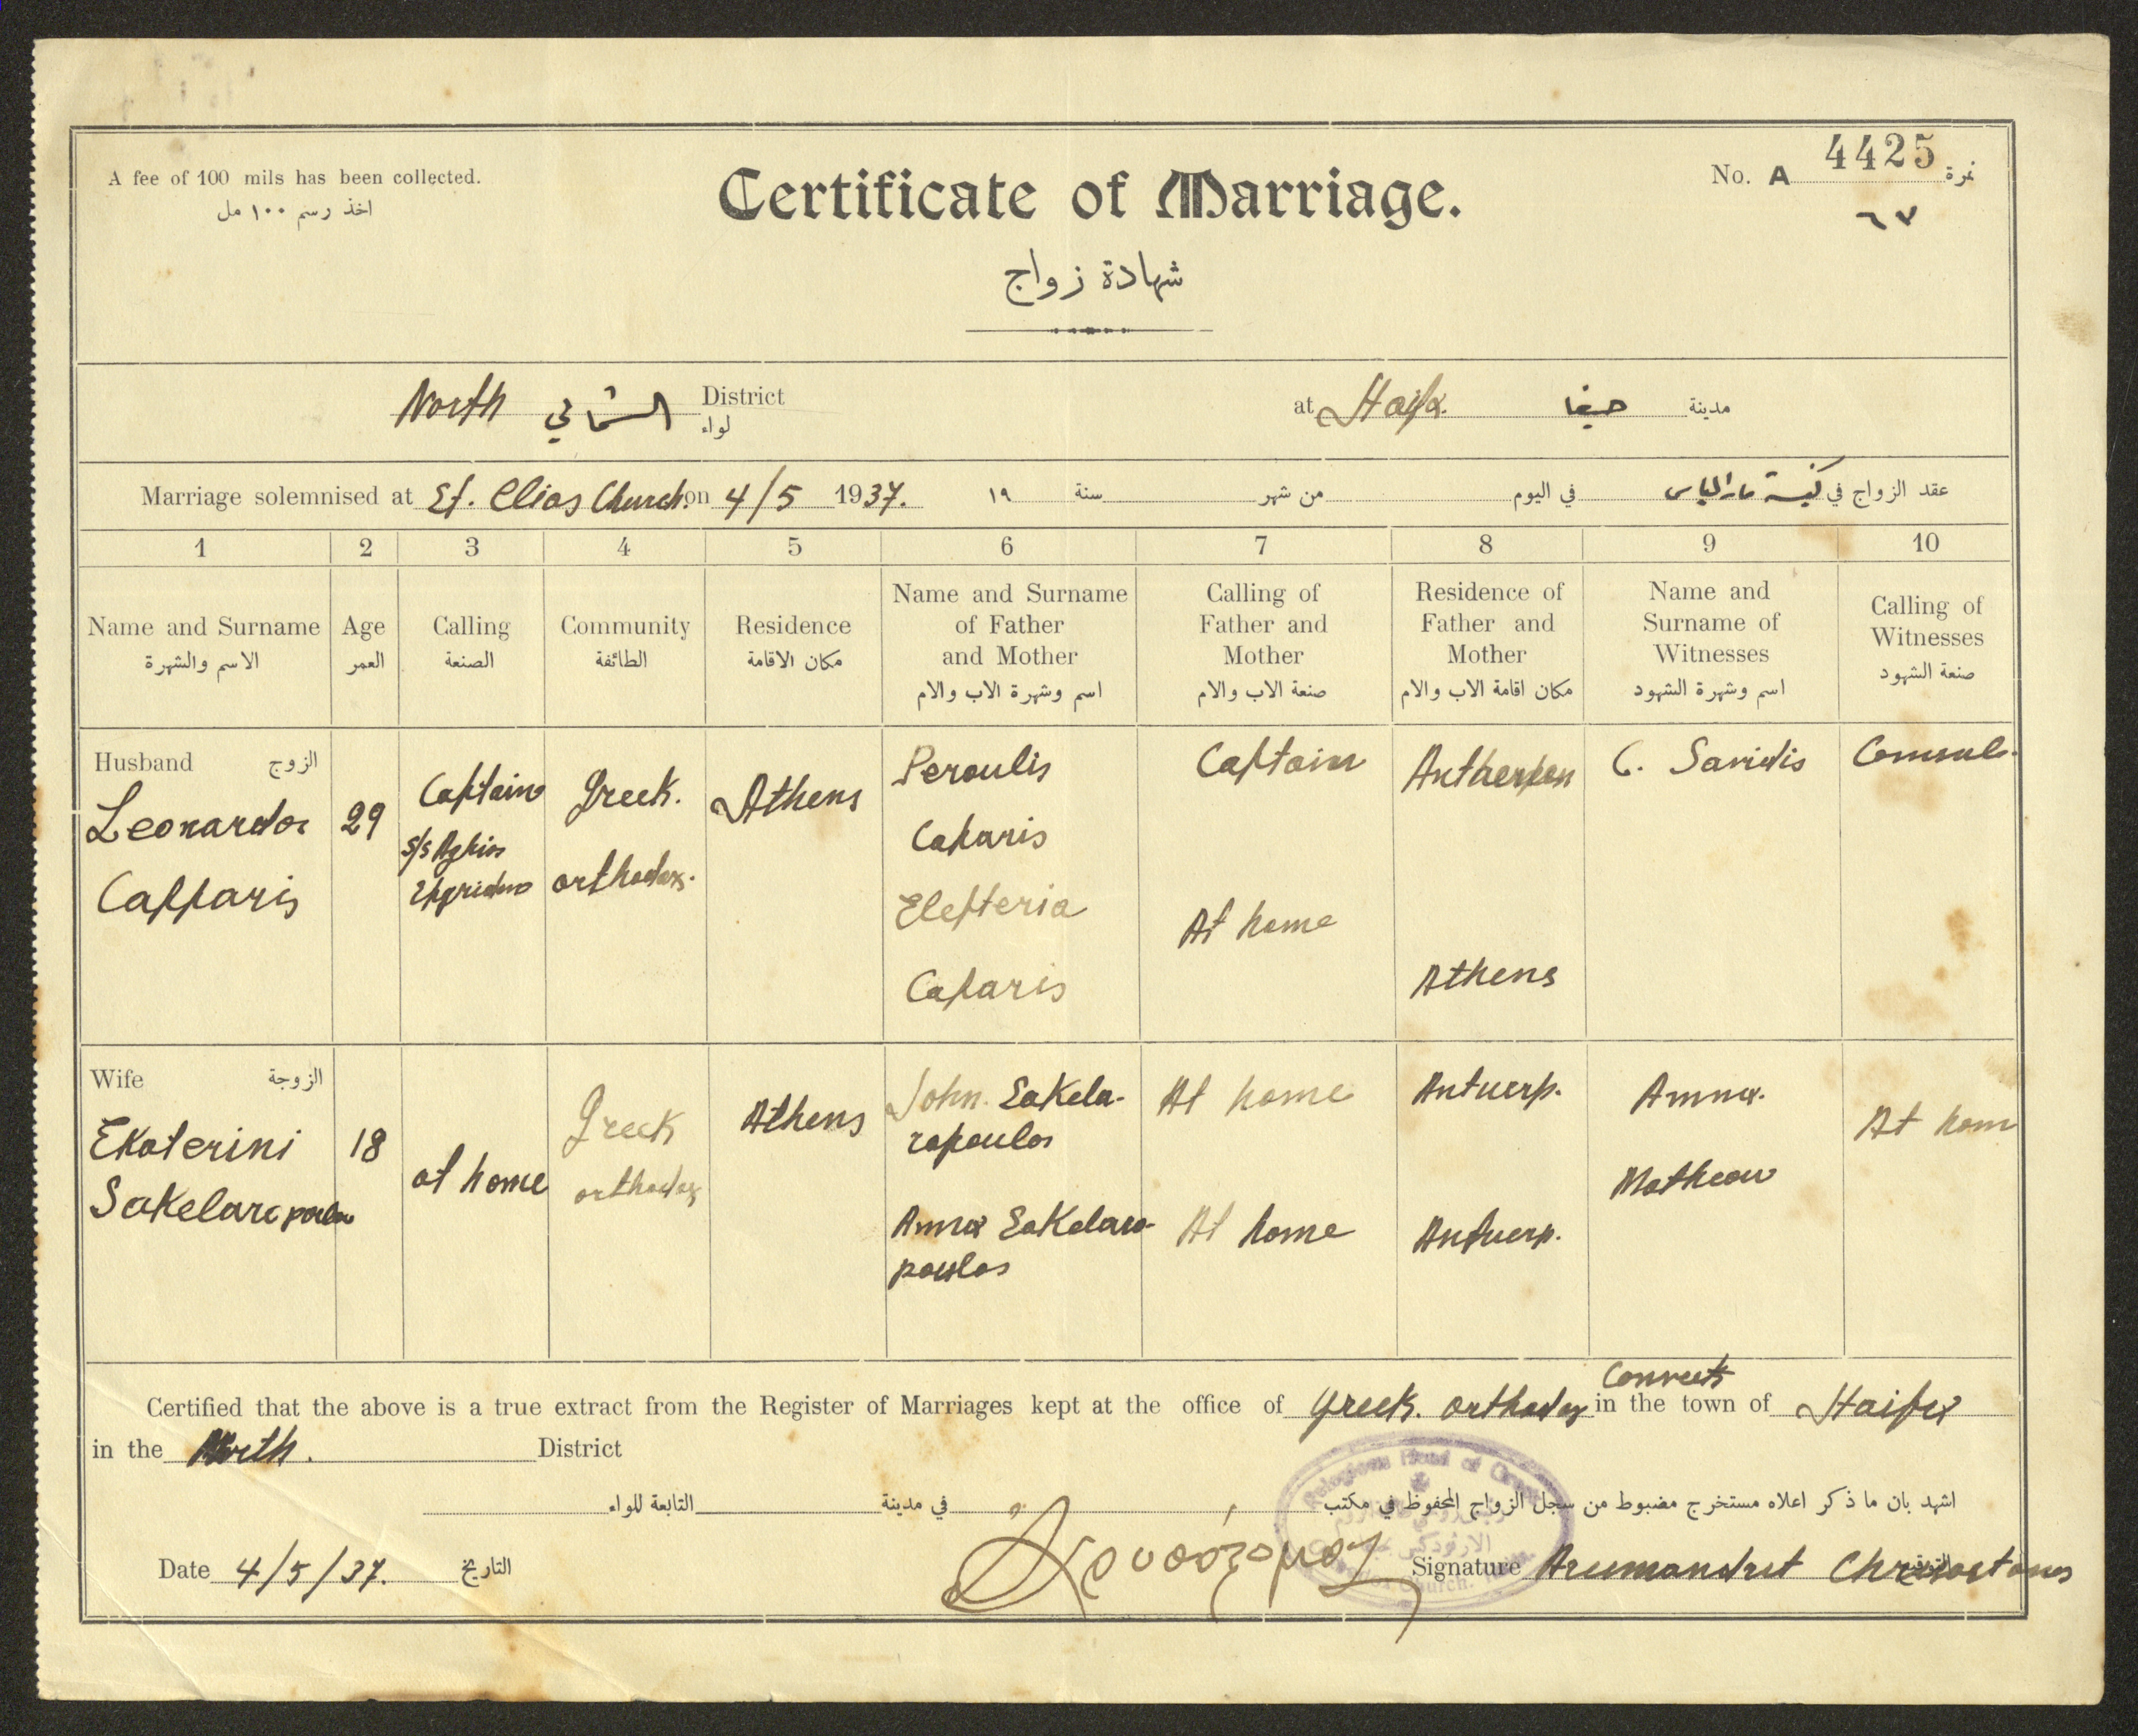 A fee of 100 mils has been collected.
اخذ رسم ١٠٠ مل
Certificate of Marriage.
شهادة زواج
No. A 4425 نمرة
٦٧
North الشمالي District
لواء
at Haifa. حيفا مدينة
Marriage solemnised at St. Elias Church. on 4/5 1937.
عقد الزواج في كنيسة مار الياس في اليوم من شهر سنة ١٩
1 2 3 4 5 6 7 8 9 10
Name and Surname
الاسم والشهرة
Age
العمر
Calling
الصنعة
Community
الطائفة
Residence
مكان الاقامة
Name and Surname
of Father
and Mother
اسم وشهرة الاب والام
Calling of
Father and
Mother
صنعة الاب والام
Residence of
Father and
Mother
مكان اقامة الاب والام
Name and
Surname of
Witnesses
اسم وشهرة الشهود
Calling of
Witnesses
صنعة الشهود
Husband الزوج
Leonardos
Capparis
29
Captain
S/S Aghios
Greek.
orthodox.
Athens
Peroulis
Caparis
Elefteria
Caparis
Captain
At home
Antwerpen
Athens
C. Savidis
Consul.
Wife الزوجة
Ekaterini
Sakelaropoulou
18
at home
Greek
orthodox
Athens
John. Sakela-
ropoulos
Anna Sakelaro-
poulos
At home
At home
Antwerp.
Antwerp.
Anna.
Matheou
At home
Certified that the above is a true extract from the Register of Marriages kept at the office of Greek. orthodox Convent in the town of Haifa
in the North. District
اشهد بان ما ذكر اعلاه مستخرج مضبوط من سجل الزواج المحفوظ في مكتب في مدينة التابعة للواء
Date 4/5/37. التاريخ
Signature